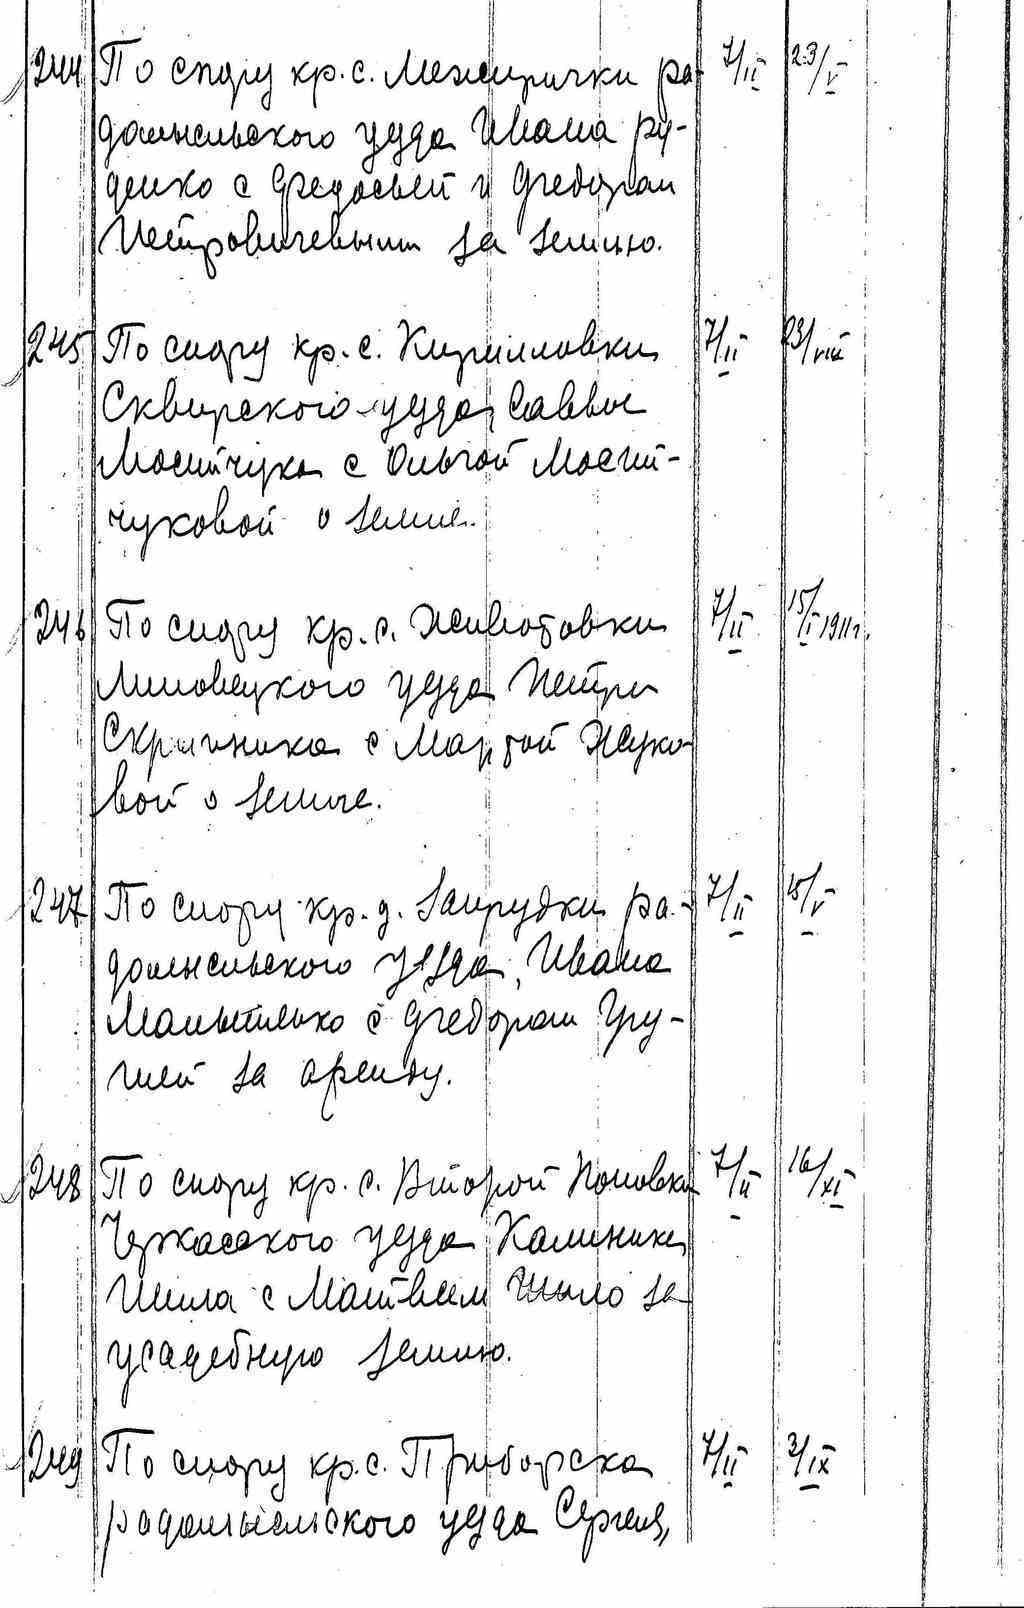 244 По спору кр. с. Межирички ра- 7/II 23/V
домысльского уезда Ивана Ру-
денко с Федосьей и Федором
Петровичевыми за землю.
245 По спору кр. с. Кирилловки 7/II 23/VIII
Сквирского уезда, Саввы
Мосийчука с Ольгой Мосий-
чуковой о земле.
246 По спору кр. с. Животовки 7/II 15/I 1911г.
Липовецкого уезда Петра
Скрипника с Мартой Жуко-
вой о земле.
247 По спору кр. д. Запрудки ра- 7/II 15/V
домысльского уезда, Ивана
с Федором Гру-
шей за аренду.
248 По спору кр. с. Второй Поповки 7/II 16/XI
Черкасского уезда Калиника
Шила с Матвеем Шило за
усадебную землю.
249 По спору кр. с. Приборска 7/II 3/IX
радомысльского уезда Сергея,